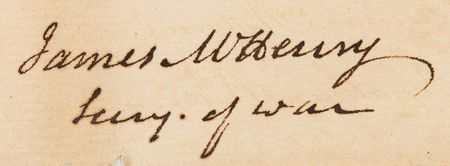 James McHenry
Secry. of war